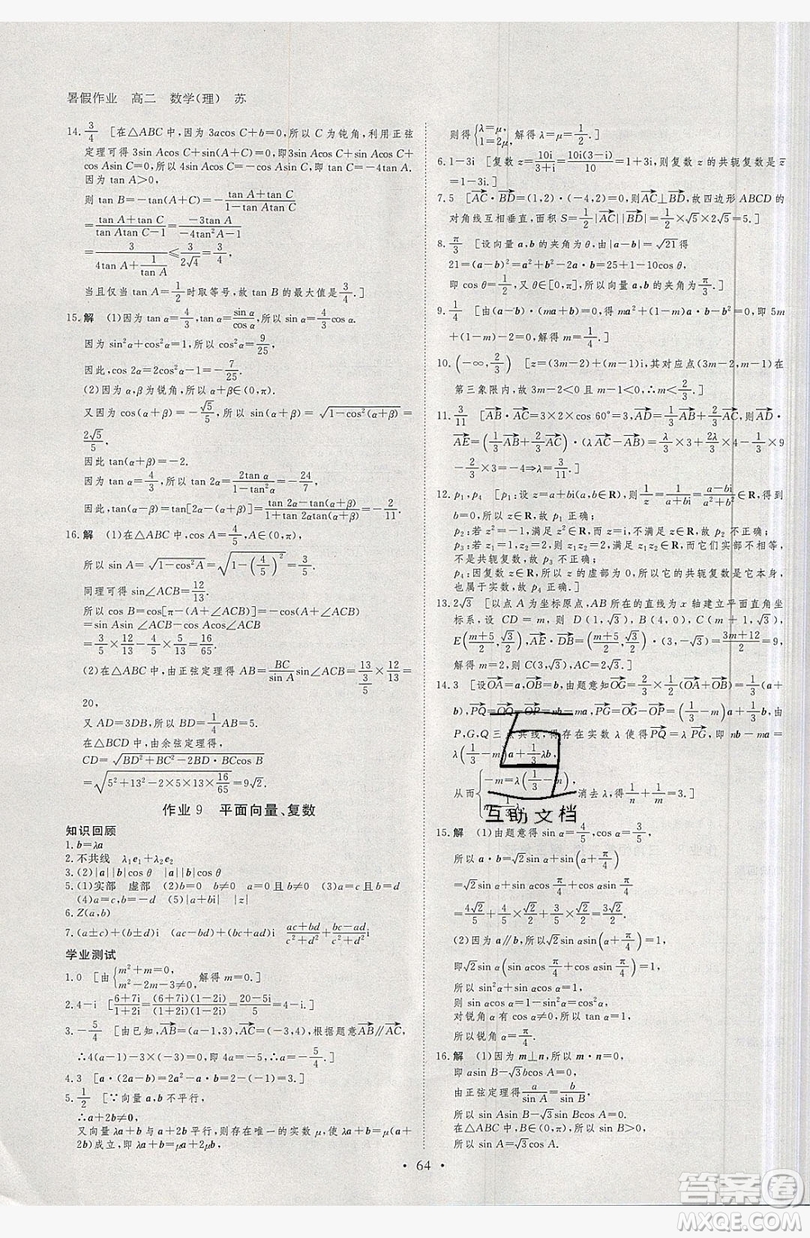 暑假作业 高二 数学(理) 苏
14. 3/4 [在△ABC中,因为3acos C+b=0,所以C为钝角,利用正弦
定理可得3sin Acos C+sin(A+C)=0,即3sin Acos C+sin A·
cos C+cos Asin C=0,所以4sin Acos C=-cos A·sin C,即tan C=-4tan A.
因为tan A>0,
则tan B=-tan(A+C)=-(tan A+tan C)/(1-tan Atan C)
=(tan A+tan C)/(tan Atan C-1)=-3tan A/(-4tan²A-1)
=3/(4tan A+1/tan A)≤3/(2√4)=3/4,
当且仅当tan A=1/2时取等号,故tan B的最大值是3/4.]
15.解 (1)因为tan α=4/3,tan α=sin α/cos α,所以sin α=4/3cos α.
因为sin²α+cos²α=1,所以cos²α=9/25,
因此,cos 2α=2cos²α-1=-7/25.
(2)因为α,β为锐角,所以α+β∈(0,π).
又因为cos(α+β)=-√5/5,所以sin(α+β)=√(1-cos²(α+β))=
2√5/5,
因此tan(α+β)=-2.
因为tan α=4/3,所以tan 2α=2tan α/(1-tan²α)=-24/7,
因此,tan(α-β)=tan[2α-(α+β)]=(tan 2α-tan(α+β))/(1+tan 2αtan(α+β))=-2/11.
16.解 (1)在△ABC中,因为cos A=4/5,A∈(0,π),
所以sin A=√(1-cos²A)=√(1-(4/5)²)=3/5.
同理可得sin∠ACB=12/13.
所以cos B=cos[π-(A+∠ACB)]=-cos(A+∠ACB)
=sin Asin∠ACB-cos Acos∠ACB
=3/5×12/13-4/5×5/13=16/65.
(2)在△ABC中,由正弦定理得AB=BC/sin A sin∠ACB=13/(3/5)×12/13=
20,
又AD=3DB,所以BD=1/4AB=5.
在△BCD中,由余弦定理得
CD=√(BD²+BC²-2BD·BCcos B)
=√(5²+13²-2×5×13×16/65)=9√2.
作业9 平面向量、复数
知识回顾
1.b=λa
2.不共线 λ₁e₁+λ₂e₂
3.(2)|a||b|cos θ |b|cos θ
5.(1)实部 虚部 (2)a=c且b=d (3)a=c,b=-d
(4)|a+bi| |z|
6.Z(a,b)
7.(a±c)+(b±d)i (ac-bd)+(ad+bc)i (ac+bd)/(c²+d²)+(bc-ad)/(c²+d²)i
学业测试
1.0 [由{m²+m=0, m²-1≠0, 解得m=0.]
2.4-i [(6+7i)/(1+2i)=(6+7i)(1-2i)/((1+2i)(1-2i))=(20-5i)/5=4-i.]
3.-5/4 [由题意知,AB=(a-1,3),AC=(-3,4),根据题意AB∥AC,
∴4(a-1)=3×(-3),即4a=-5,∴a=-5/4.]
4.3 [a·(2a-b)=2a²-a·b=2|a|²-a·b=3.]
5.1/2 [∵向量a,b不平行,
∴a+2b≠0,
又向量λa+b与a+2b平行,则存在唯一的实数μ,使λa+b=μ(a+2b)成立,即λa+b=μa+2μb,
则得{λ=μ, 1=2μ, 解得λ=μ=1/2.]
6.1-3i [复数z=10i/(3+i)=10i(3-i)/10=1+3i,所以复数z的共轭复数是1-3i.]
7.5 [AC·BD=(1,2)·(-4,2)=0,所以AC⊥BD,故四边形ABCD的
对角线互相垂直,面积S=1/2|AC||BD|=1/2×√5×2√5=5.]
8.π/3 [设向量a,b的夹角为θ,由|a-b|=√21得
21=(a-b)²=a²+b²-2a·b=25+1-10cos θ,
即cos θ=1/2,所以向量a,b的夹角为π/3.]
9.1/4 [由(a-b)·(ma+b)=0得ma²+(1-m)a·b-b²=0,即m×1+
(1-m)×1×2×1/2-4=0,解得m=1/4.]
10.(-∞,2/3) [z=(3m-2)+(m-1)i,其对应点(3m-2,m-1)在
第三象限内,故3m-2<0且m-1<0,∴m<2/3.]
11.3/11 [AB·AC=3×2×cos 60°=3,AD=1/3AB+2/3AC,则AD·
AE=(1/3AB+2/3AC)(λAC-AB)=λ/3×3+2λ/3×4-1/3×9-
2/3×3=-4⇒λ=3/11.]
12.p₁,p₄ [p₁:设z=a+bi(a,b∈R),则1/z=1/(a+bi)=(a-bi)/(a²+b²)∈R,得到
b=0,所以z∈R.故p₁正确;
p₂:若z²=-1,满足z²∈R,而z=i,不满足z∈R,故p₂不正确;
p₃:若z₁=1,z₂=2,则z₁z₂=2,满足z₁z₂∈R,而它们实部不相
等,不是共轭复数,故p₃不正确;
p₄:因复数z∈R,所以z的虚部为0,所以它的共轭复数是它本身,
也属于实数,故p₄正确.]
13.2√3 [以点A为坐标原点,AB所在的直线为x轴建立平面直角坐
标系,设CD=m,则D(1,√3),B(4,0),C(m+1,√3),
E((m+5)/2,√3/2),AE·BD=((m+5)/2,√3/2)·(-3,√3)=-(3m+12)/2=
-9,解得m=2.]
14.3 [设OA=a,OB=b,由题意知OG=2/3×1/2(OA+OB)=1/3(a+
b),PQ=OQ-OP=nb-ma,PG=OG-OP=(1/3-m)a+1/3b,由
P,G,Q三点共线,得存在实数λ使得PQ=λPG,即nb-ma=
λ(1/3-m)a+1/3λb,
从而{-m=λ(1/3-m), n=1/3λ, 消去λ,得1/n+1/m=3.]
15.解 (1)由题意得sin α=4/5,cos α=3/5,
所以a·b=√2sin α+√2sin(α+π/4)
=√2sin α+√2sin αcos π/4+√2cos αsin π/4
=4√2/5+√2×4/5×√2/2+√2×3/5×√2/2
(2)因为a∥b,所以√2sin α·√2sin(α+π/4)=1,
即√2sin α(√2sin αcos π/4+√2cos αsin π/4)=1,
所以sin²α+sin αcos α=1,
则sin αcos α=1-sin²α=cos²α,
对锐角α有cos α≠0,所以tan α=1,
所以锐角α=π/4.
16.解 (1)因为m⊥n,所以m·n=0,
由正弦定理得a/sin A=b/sin B,
所以sin Asin B-√3sin Bcos A=0,
所以sin A=√3cos A.
互助文档
· 64 ·
答案圈
MXQE.COM